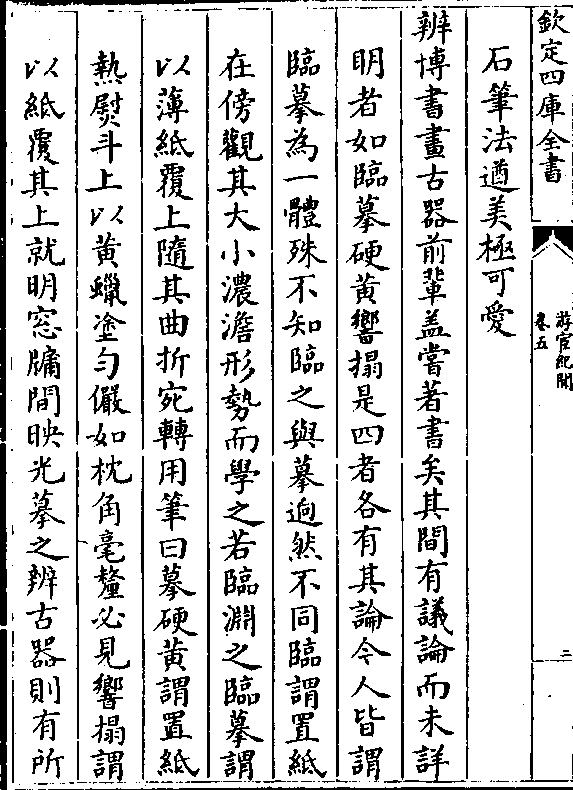 欽定四庫全書
游宦紀聞
卷五
三
石筆法遒美極可愛
辨博書畫古器前輩盖嘗著書矣其間有議論而未詳
明者如臨摹硬黄響搨是四者各有其論今人皆謂
臨摹為一體殊不知臨之與摹迥然不同臨謂置紙
在傍觀其大小濃澹形勢而學之若臨淵之臨摹謂
以薄紙覆上隨其曲折宛轉用筆曰摹硬黄謂置紙
熱熨斗上以黄蠟塗匀儼如枕角毫釐必見響搨謂
以紙覆其上就明窓牖間映光摹之辨古器則有所